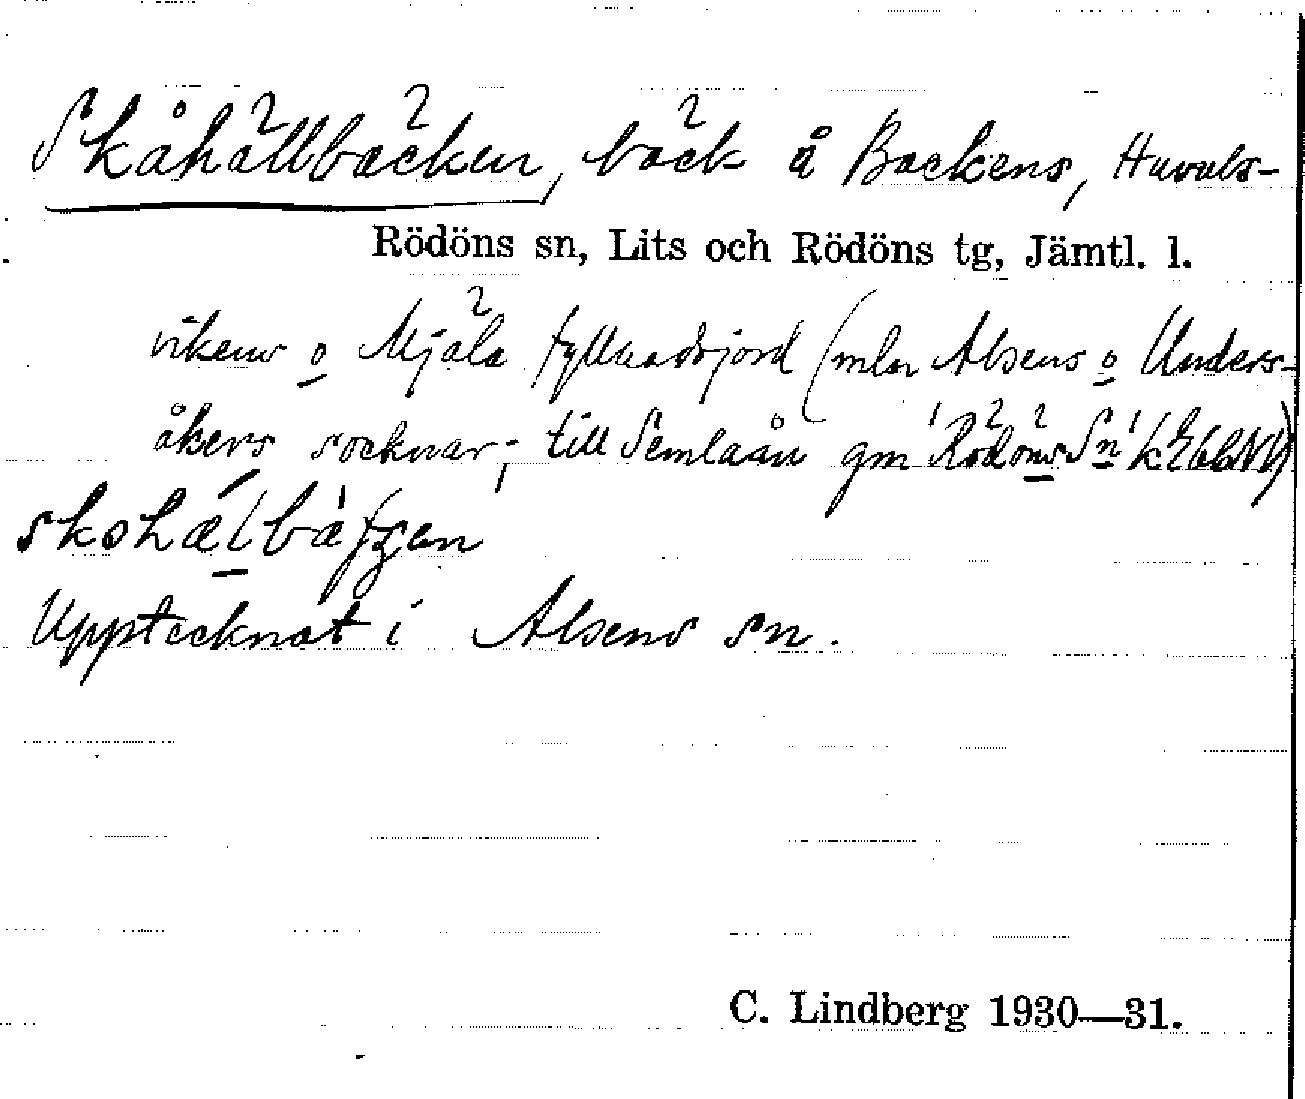 Skåhällbäcken, bäck å Backens, Huvuls-
Rödöns sn, Lits och Rödöns tg, Jämtl. l.
vikens o Mjäla fyllnadsjord (mln Alsens o Unders-
åkers socknar, till Semlaån gm Rödöns Sn
skohælbäkʒen
Upptecknat i Alsens sn.
C. Lindberg 1930—31.